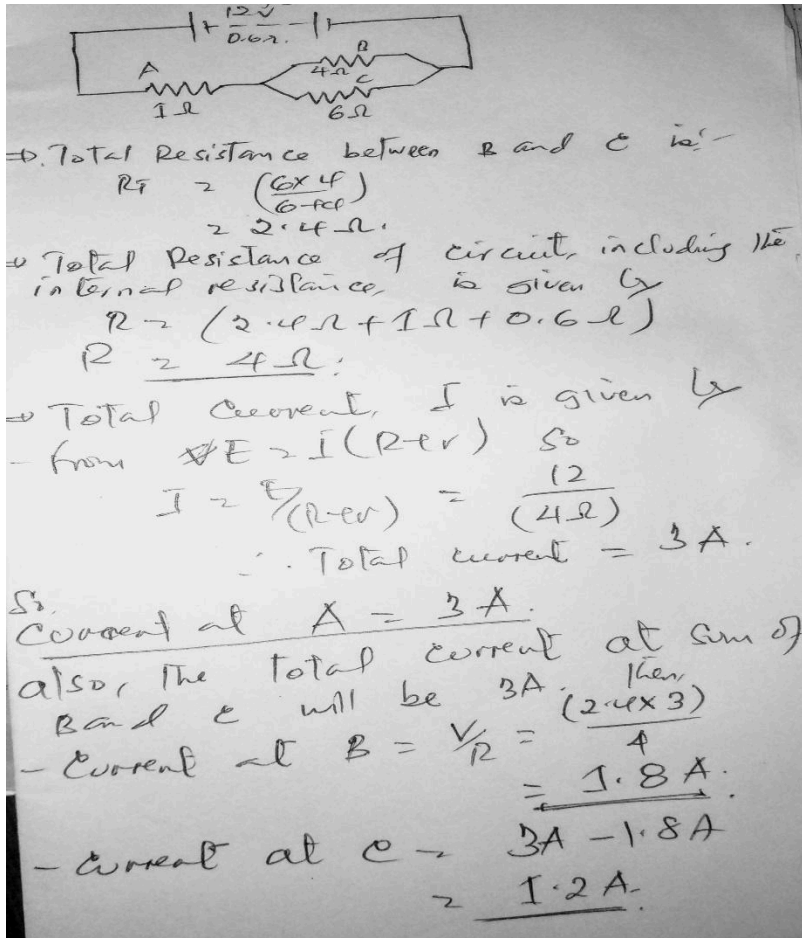 12V
0.6Ω.
A
B
4Ω
C
1Ω
6Ω
⇒. Total Resistance between B and C is:-
RT = (6x4 / 6+4)
= 2.4Ω.
⇒ Total Resistance of circuit, including the
internal resistance, is given by
R = (2.4Ω + 1Ω + 0.6Ω)
R = 4Ω.
⇒ Total Current, I is given by
- from E = I(R+r) So
I = E/(R+r) = 12/(4Ω)
∴ Total current = 3A.
So.
Current at A = 3A.
also, The total current at sum of
B and C will be 3A. Then,
- Current at B = V/R = (2.4x3)/4
= 1.8A.
- Current at C = 3A - 1.8A
= 1.2A.